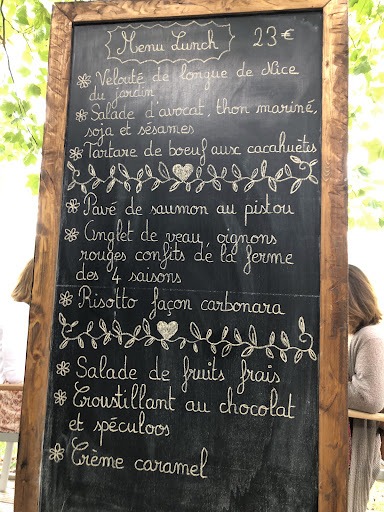 Menu Lunch 23€
Velouté de longue de Nice
du jardin
Salade d'avocat, thon mariné,
soja et sésames
Tartare de boeuf aux cacahuètes
Pavé de saumon au pistou
Onglet de veau, oignons
rouges confits de la ferme
des 4 saisons
Risotto façon carbonara
Salade de fruits frais
Croustillant au chocolat
et spéculoos
Crème caramel